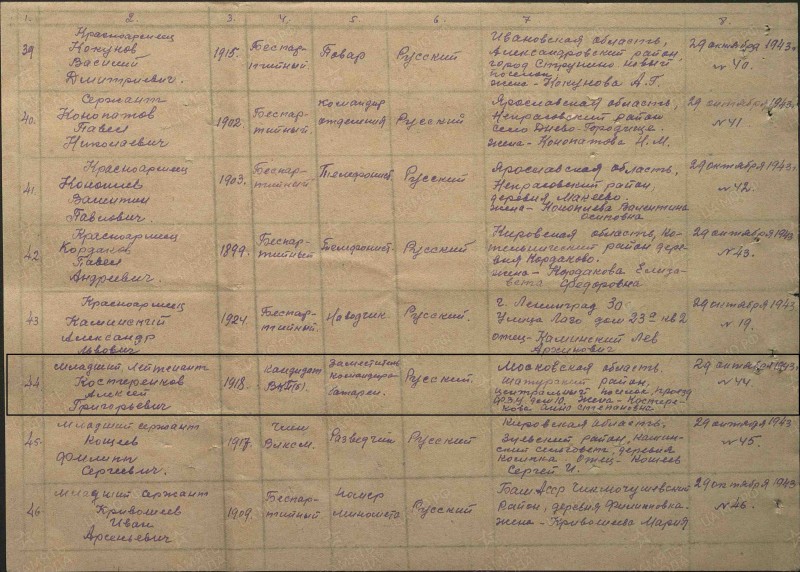 1. 2. 3. 4. 5. 6. 7 8.
39 Красноармеец
Кокунов
Василий
Дмитриевич.
1915. Беспар-
тийный
Повар
Русский
Ивановская область,
Александровский район,
город Струнино новый
поселок
жена - Кокунова А.Г.
29 октября 1943г.
№ 40.
40. Сержант
Конопатов
Павел
Николаевич
1902. Беспар-
тийный.
командир
отделения
Русский
Ярославская область,
Некрасовский район
село Диево-Городище.
жена - Конопатова Н.М.
29 октября 1943г.
№ 41
41 Красноармеец
Валентин
Павлович.
1903. Беспар-
тийный
Телефонист
Русский
Ярославская область,
Некрасовский район,
деревня Макеево.
жена - Валентина
осиповна
29 октября 1943г.
№ 42.
42 Красноармеец
Кордаков
Павел
Андреевич.
1899. Беспар-
тийный
Телефонист.
Русский
Кировская область, Ко-
тельнический район дерев-
ня Кордаково.
жена - Кордакова Елиза-
вета Федоровна
29 октября 1943г.
№ 43.
43 Красноармеец
Каминский
Александр
Львович
1924. Беспар-
тийный.
Наводчик.
Русский.
г. Ленинград 30
Улица дом 23а кв 2
отец - Каминский Лев
29 октября 1943г.
№ 19.
44 Младший Лейтенант
Костереков
Алексей
Григорьевич
1918. Кандидат
ВКП(б).
Заместитель
командира
батареи.
Русский.
Московская область,
Шатурский район,
центральный поселок, проезд
дом 10. жена - Костере-
кова Анна Степановна
29 октября 1943г.
№ 44.
45. Младший сержант
Кошеев
Филипп
Сергеевич.
1917. Член
Влксм.
Разведчик
Русский
Кировская область,
Зуевский район,
сельсовет, деревня
отец - Кошеев
Сергей И.
29 октября 1943г.
№ 45.
46. Младший сержант
Кривошеев
Иван
Арсеньевич
1909. Беспар-
тийный
номер
миномета
Русский
Баш АССР
Район, деревня Филипповка.
жена - Кривошеева Мария
29 октября 1943г.
№ 46.